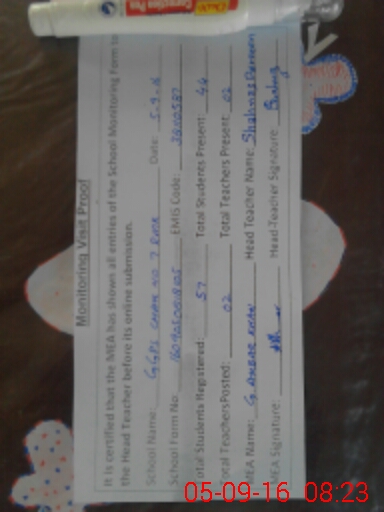 Correction Pen
Monitoring Visit Proof
It is certified that the MEA has shown all entries of the School Monitoring Form to
the Head Teacher before its online submission.
School Name: GGPS CHAK NO 7 Date: 5-9-16
School Form No: EMIS Code:
Total Students Registered: 57 Total Students Present: 44
Total Teachers Posted: 02 Total Teachers Present: 02
MEA Name: Head Teacher Name: Shahnaz Parveen
MEA Signature: Head Teacher Signature:
05-09-16 08:23